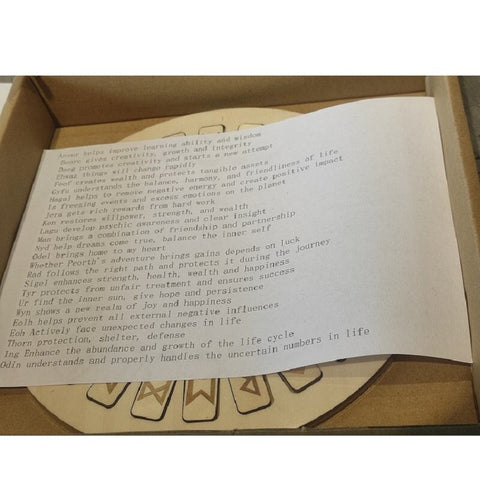 Anser helps improve learning ability and wisdom
Beorc gives creativity, growth and integrity
Daeg promotes creativity and starts a new attempt
Ehwaz things will change rapidly
Feof creates wealth and protects tangible assets
Gyfu understands the balance, harmony, and friendliness of life
Hagal helps to remove negative energy and create positive impact
Is freezing events and excess emotions on the planet
Jera gets rich rewards from hard work
Ken restores willpower, strength, and wealth
Lagu develop psychic awareness and clear insight
Man brings a combination of friendship and partnership
Nyd help dreams come true, balance the inner self
Odel brings home to my heart
Whether Peorth's adventure brings gains depends on luck
Rad follows the right path and protects it during the journey
Sigel enhances strength, health, wealth and happiness
Tyr protects from unfair treatment and ensures success
Ur find the inner sun, give hope and persistence
Wyn shows a new realm of joy and happiness
Eolh helps prevent all external negative influences
Eoh Actively face unexpected changes in life
Thorn protection, shelter, defense
Ing Enhance the abundance and growth of the life cycle
Odin understands and properly handles the uncertain numbers in life